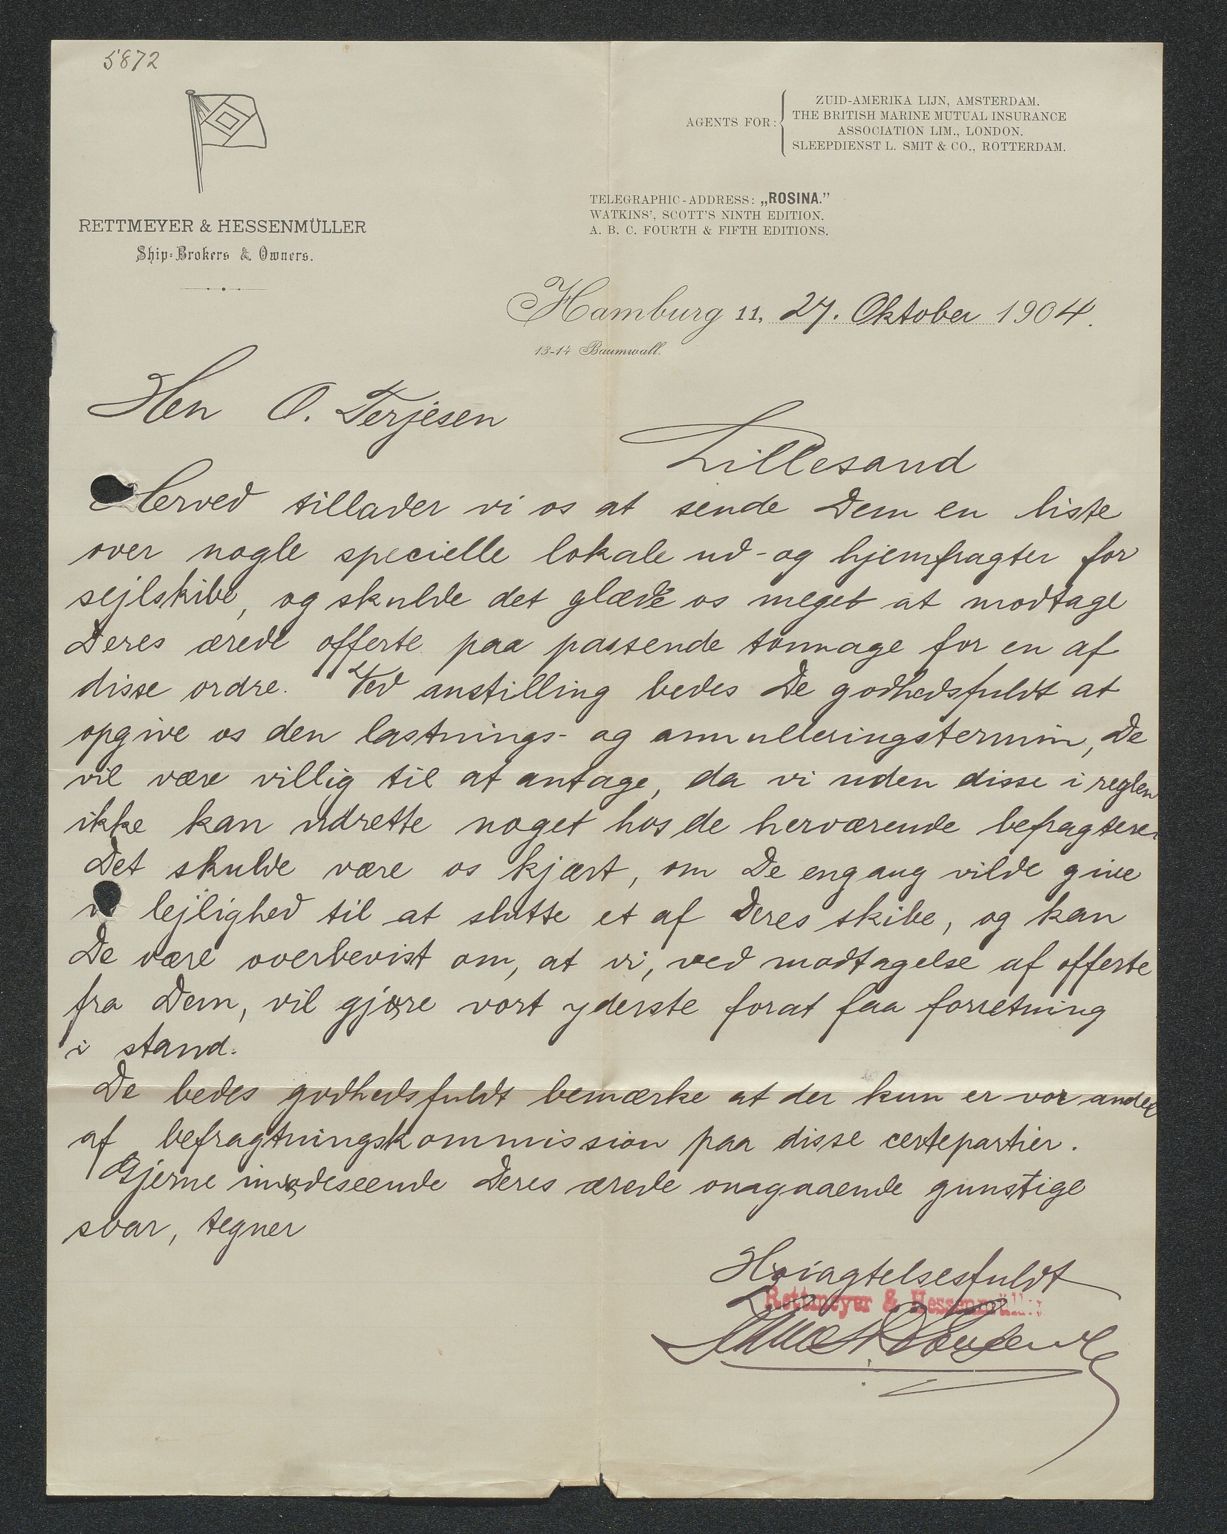 5872
AGENTS FOR:
ZUID-AMERIKA LIJN, AMSTERDAM.
THE BRITISH MARINE MUTUAL INSURANCE
ASSOCIATION LIM., LONDON.
SLEEPDIENST L. SMIT & CO., ROTTERDAM.
TELEGRAPHIC-ADDRESS: „ROSINA.”
WATKINS', SCOTT'S NINTH EDITION.
A. B. C. FOURTH & FIFTH EDITIONS.
RETTMEYER & HESSENMÜLLER
Ship-Brokers & Owners.
Hamburg 11, 27. Oktober 1904.
13-14 Baumwall.
Herr O. Terjesen
Lillesand
Herved tillader vi os at sende Dem en liste
over nogle specielle lokale ud- og hjemfragter for
sejlskibe, og skulde det glæde os meget at modtage
Deres ærede offerte paa passende tonnage for en af
disse ordre. Ved anstilling bedes De godhedsfuldt at
opgive os den lastnings- og annulleringstermin, De
vil være villig til at antage, da vi uden disse i reglen
ikke kan udrette noget hos de herværende befragtere.
Det skulde være os kjært, om De engang vilde give
lejlighed til at slutte et af Deres skibe, og kan
De være overbevist om, at vi, ved modtagelse af offerte
fra Dem, vil gjøre vort yderste forat faa forretning
i stand.
De bedes godhedsfuldt bemærke at der kun er vor andel
af befragtningskommission paa disse certepartier.
Gjerne imødeseende Deres ærede omgaaende gunstige
svar, tegner
Høiagtelsesfuldt
Rettmeyer & Hessenmüller